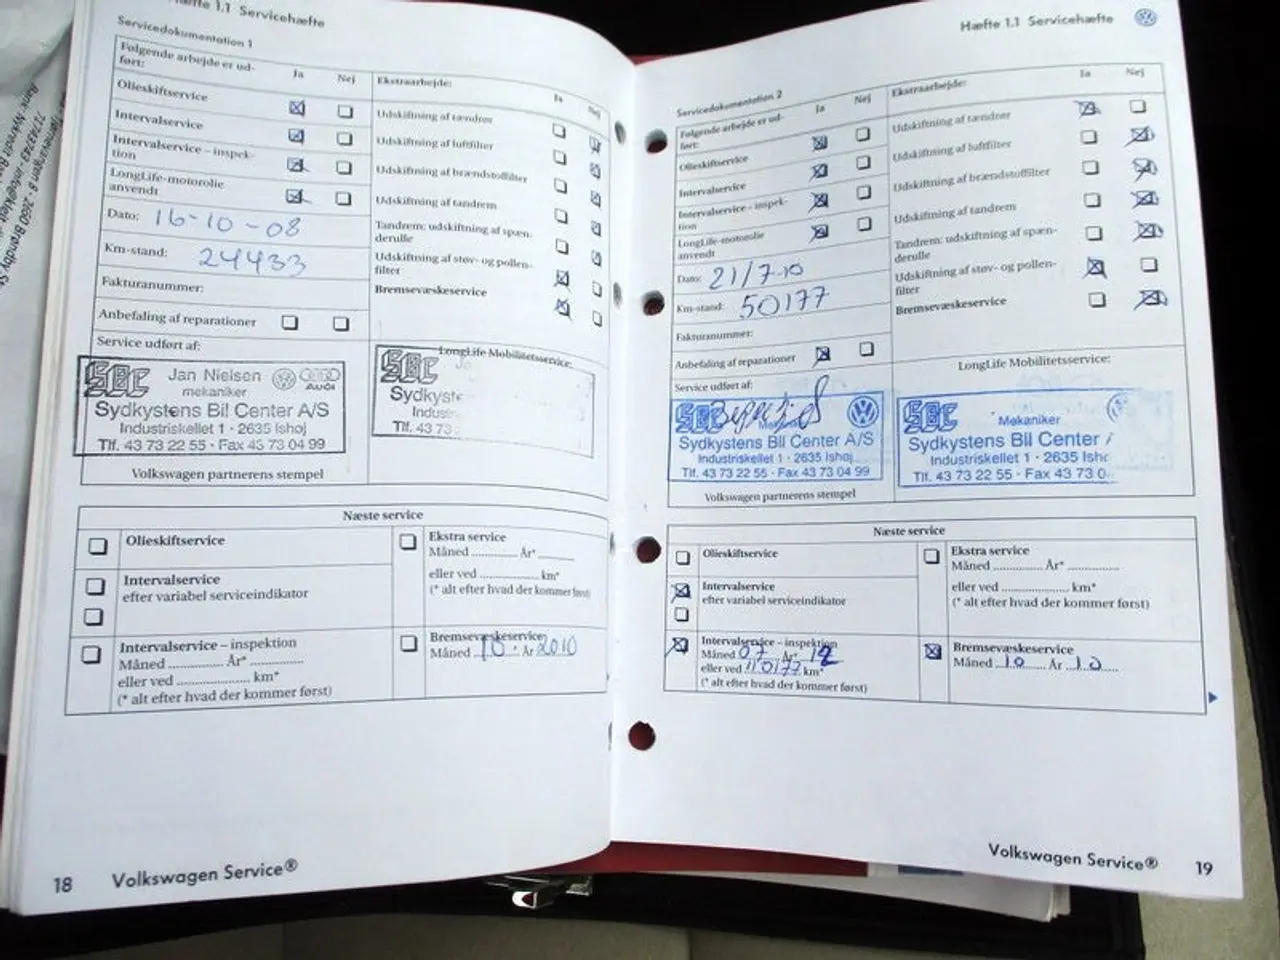 Hæfte 1.1 Servicehæfte
Servicedokumentation 1
Følgende arbejde er ud-
ført:
Ja Nej
Olieskiftservice
Intervalservice
Intervalservice – inspek-
tion
LongLife-motorolie
anvendt
Dato: 16-10-08
Km-stand: 24433
Fakturanummer:
Anbefaling af reparationer
Service udført af:
SBC Jan Nielsen
AUDI
mekaniker
Sydkystens Bil Center A/S
Industriskellet 1 · 2635 Ishøj
Tlf. 43 73 22 55 · Fax 43 73 04 99
Volkswagen partnerens stempel
Ekstraarbejde:
Ja Nej
Udskiftning af tændrør
Udskiftning af luftfilter
Udskiftning af brændstoffilter
Udskiftning af tandrem
Tandrem: udskiftning af spæn-
derulle
Udskiftning af støv- og pollen-
filter
Bremsevæskeservice
LongLife Mobilitetsservice:
SBC
Sydkyste
Industr
Tlf. 43 73
Næste service
Olieskiftservice
Intervalservice
efter variabel serviceindikator
Intervalservice – inspektion
Måned ............ År* ............
eller ved ................ km*
(* alt efter hvad der kommer først)
Ekstra service
Måned ............ År* ............
eller ved ................ km*
(* alt efter hvad der kommer først)
Bremsevæskeservice
Måned 10 . År 2010
18 Volkswagen Service®
Hæfte 1.1 Servicehæfte
Servicedokumentation 2
Følgende arbejde er ud-
ført:
Ja Nej
Olieskiftservice
Intervalservice
Intervalservice – inspek-
tion
LongLife-motorolie
anvendt
Dato: 21/7-10
Km-stand: 50177
Fakturanummer:
Anbefaling af reparationer
Service udført af:
SBC
Sydkystens Bil Center A/S
Industriskellet 1 · 2635 Ishøj
Tlf. 43 73 22 55 · Fax 43 73 04 99
Volkswagen partnerens stempel
Ekstraarbejde:
Ja Nej
Udskiftning af tændrør
Udskiftning af luftfilter
Udskiftning af brændstoffilter
Udskiftning af tandrem
Tandrem: udskiftning af spæn-
derulle
Udskiftning af støv- og pollen-
filter
Bremsevæskeservice
LongLife Mobilitetsservice:
SBC
Mekaniker
Sydkystens Bil Center /
Industriskellet 1 · 2635 Ishø
Tlf. 43 73 22 55 · Fax 43 73 0
Næste service
Olieskiftservice
Intervalservice
efter variabel serviceindikator
Intervalservice – inspektion
Måned 07 År* 12
eller ved 110177 km*
(* alt efter hvad der kommer først)
Ekstra service
Måned ............ År* ............
eller ved ................ km*
(* alt efter hvad der kommer først)
Bremsevæskeservice
Måned 10 År 10
Volkswagen Service® 19